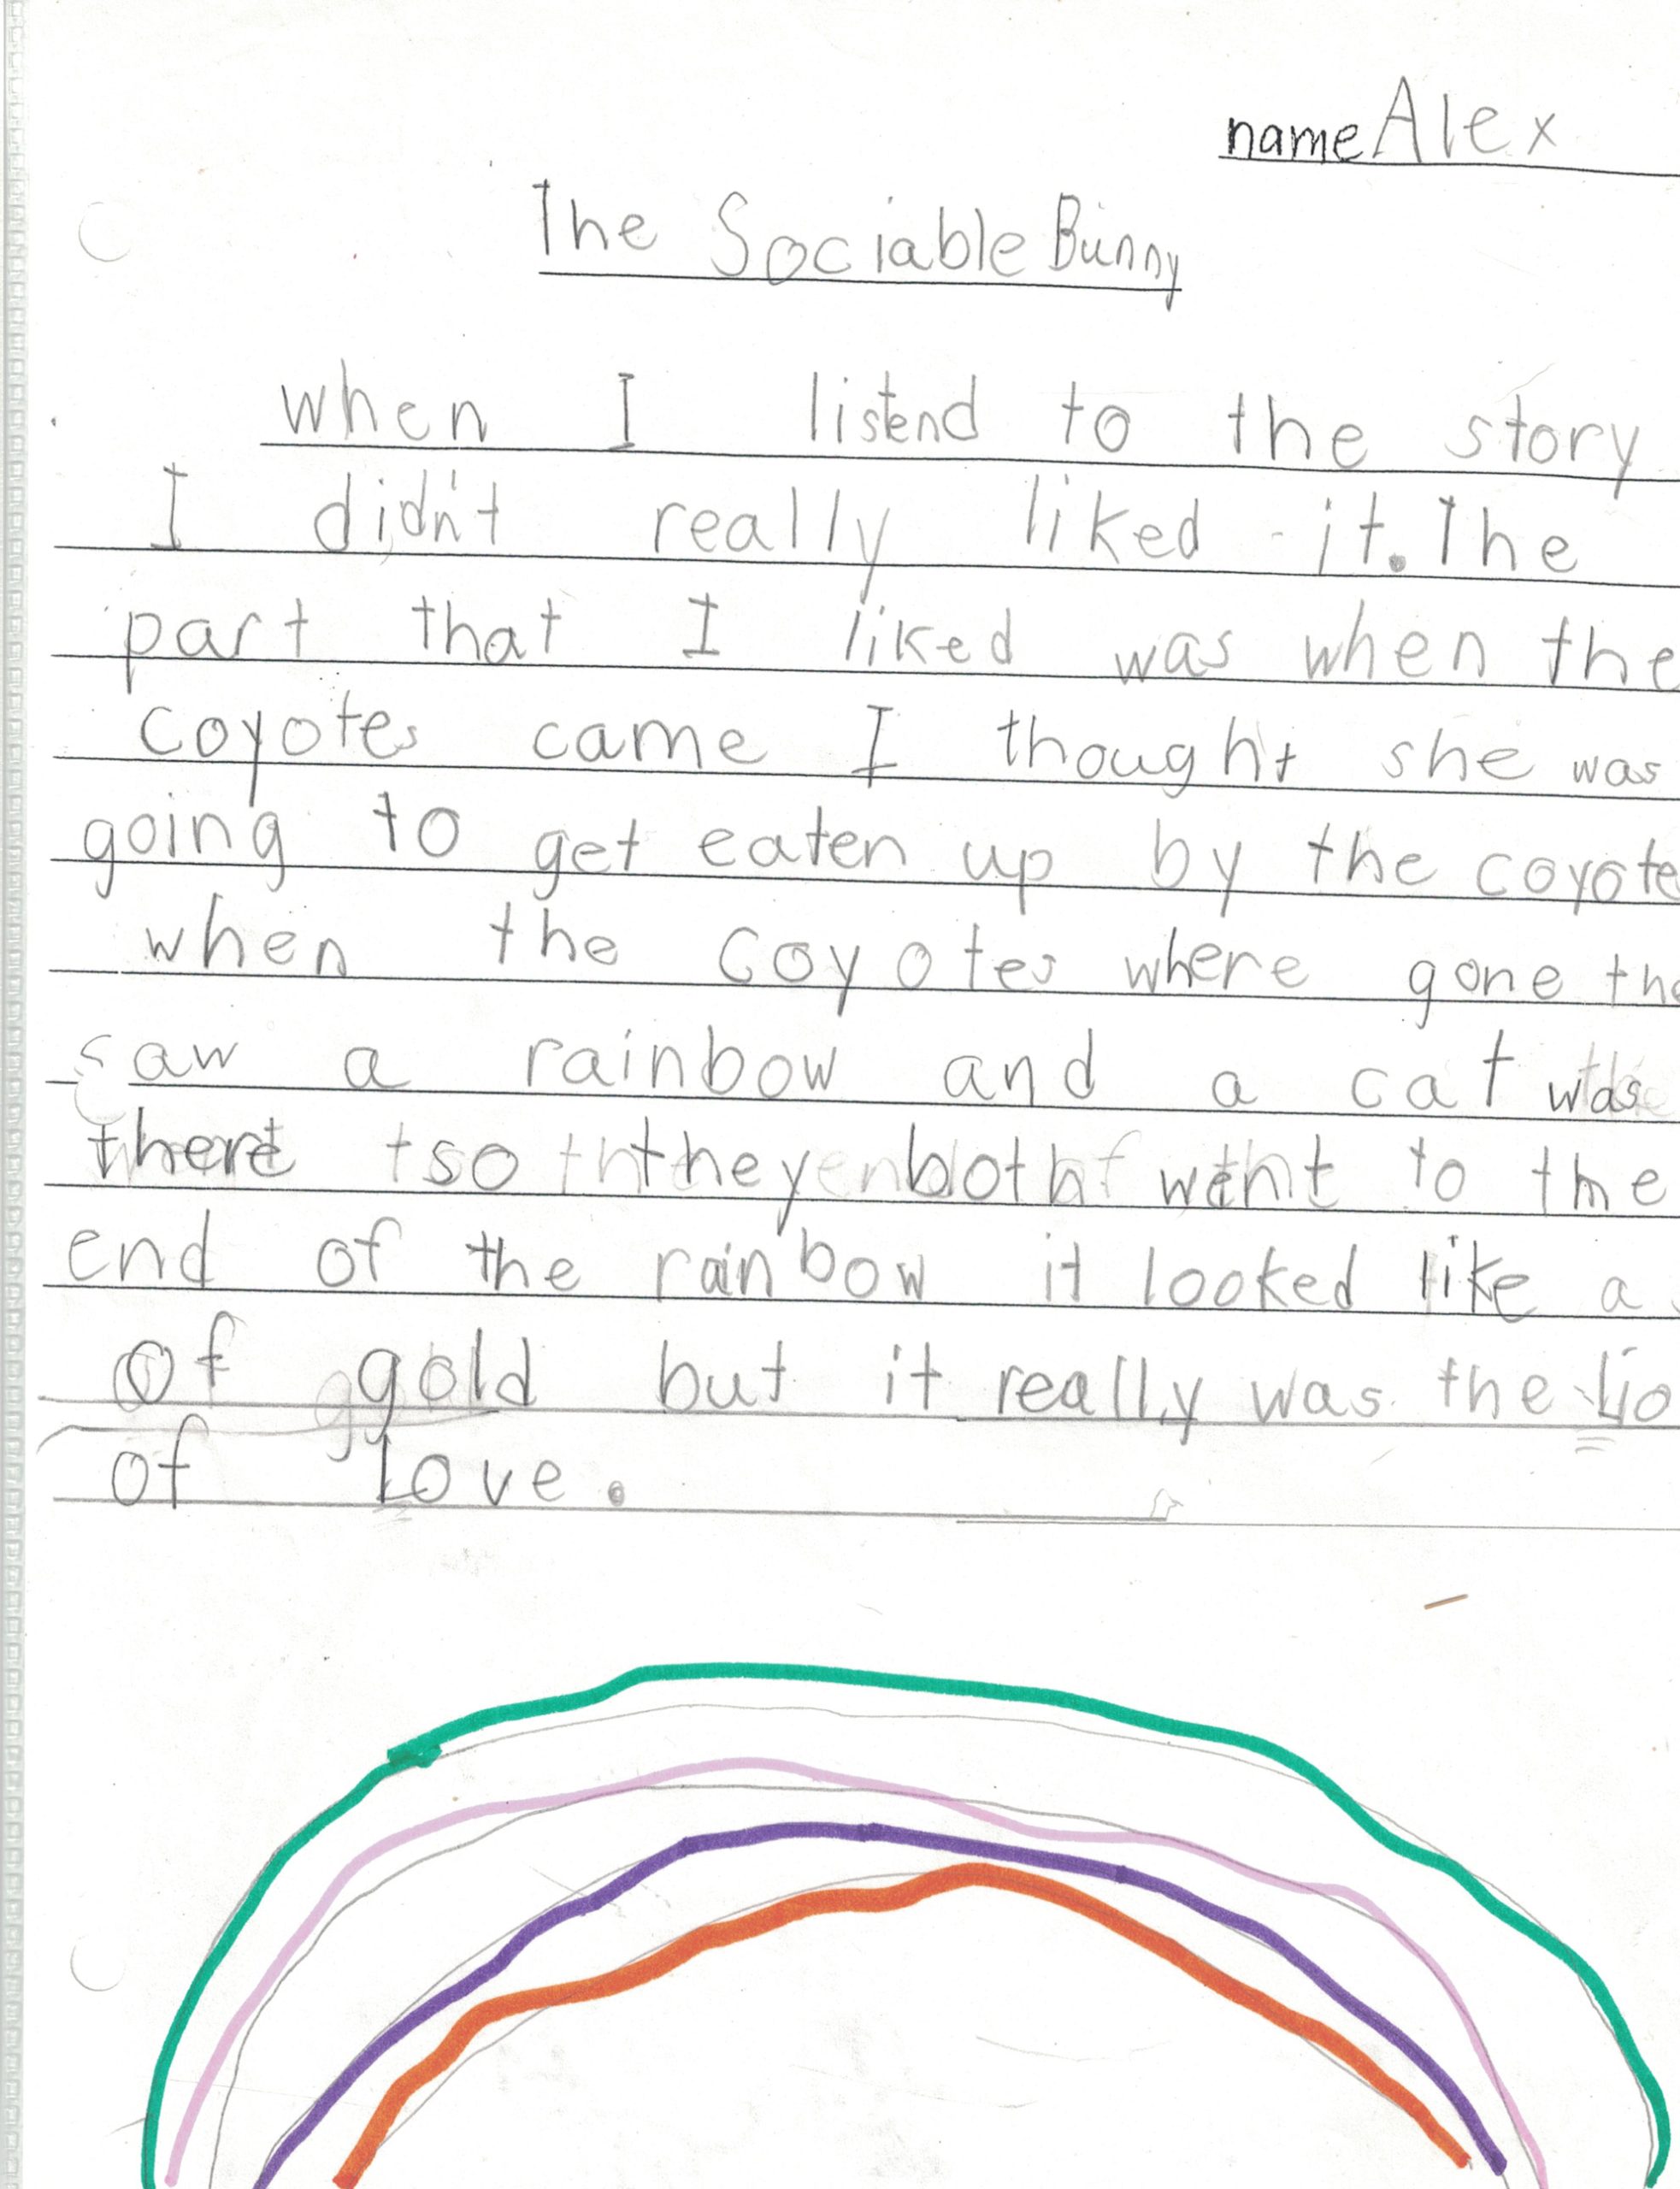 name Alex
The Sociable Bunny
when I listend to the story
I didn't really liked it. The
part that I liked was when the
coyotes came I thought she was
going to get eaten up by the coyote
when the coyotes where gone
saw a rainbow and a cat was
there so they both went to the
end of the rainbow it looked like a
of gold but it really was the
of Love.